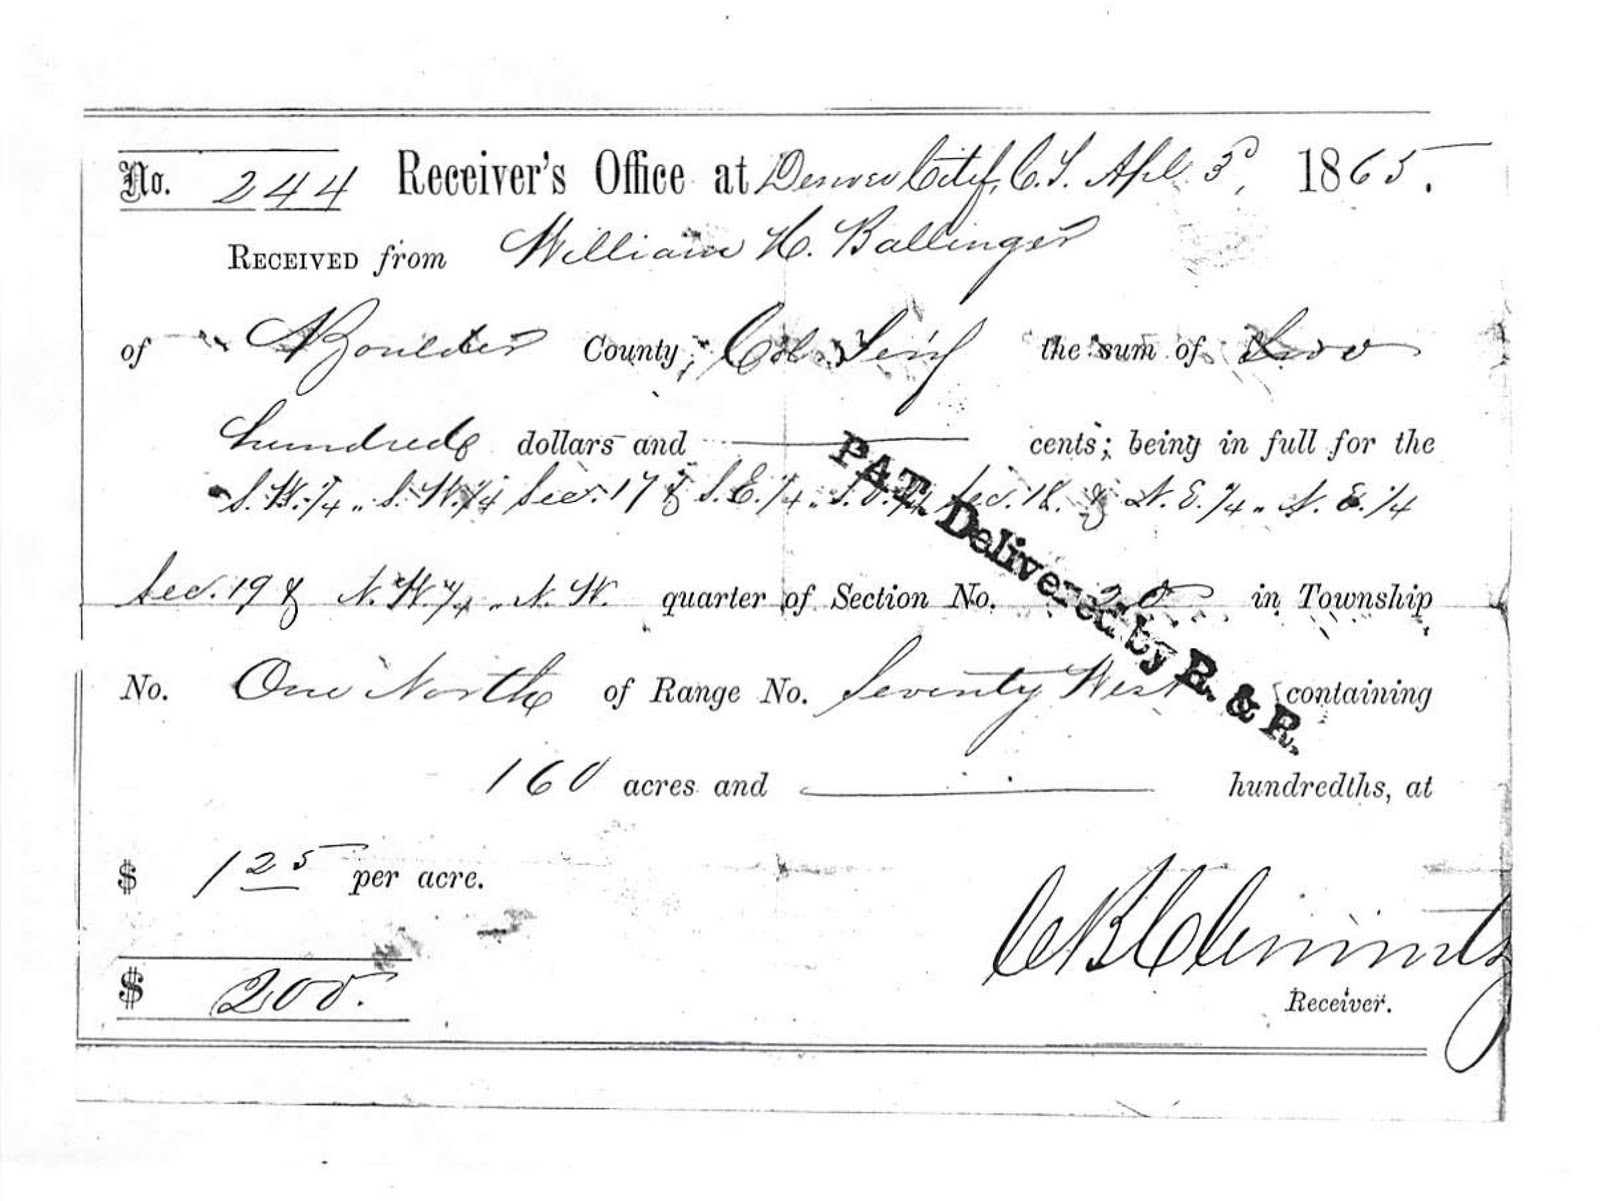 No. 244 Receiver's Office at Denver City, C.T. Apl. 3d, 1865.
RECEIVED from William H. Ballinger
of Boulder County, Col. Ter'y the sum of Two
hundred dollars and cents; being in full for the
S.W. 1/4 „ S.W. 1/4 Sec. 17 & S.E. 1/4 „ S.E. 1/4 Sec. 18. & N.E. 1/4 „ N.E. 1/4
Sec. 19 & N.W. 1/4 „ N.W. quarter of Section No. 20 in Township
No. One North of Range No. Seventy West containing
160 acres and hundredths, at
$ 1 25 per acre.
$ 200.
Receiver.
PAT. Delivered by R. & R.